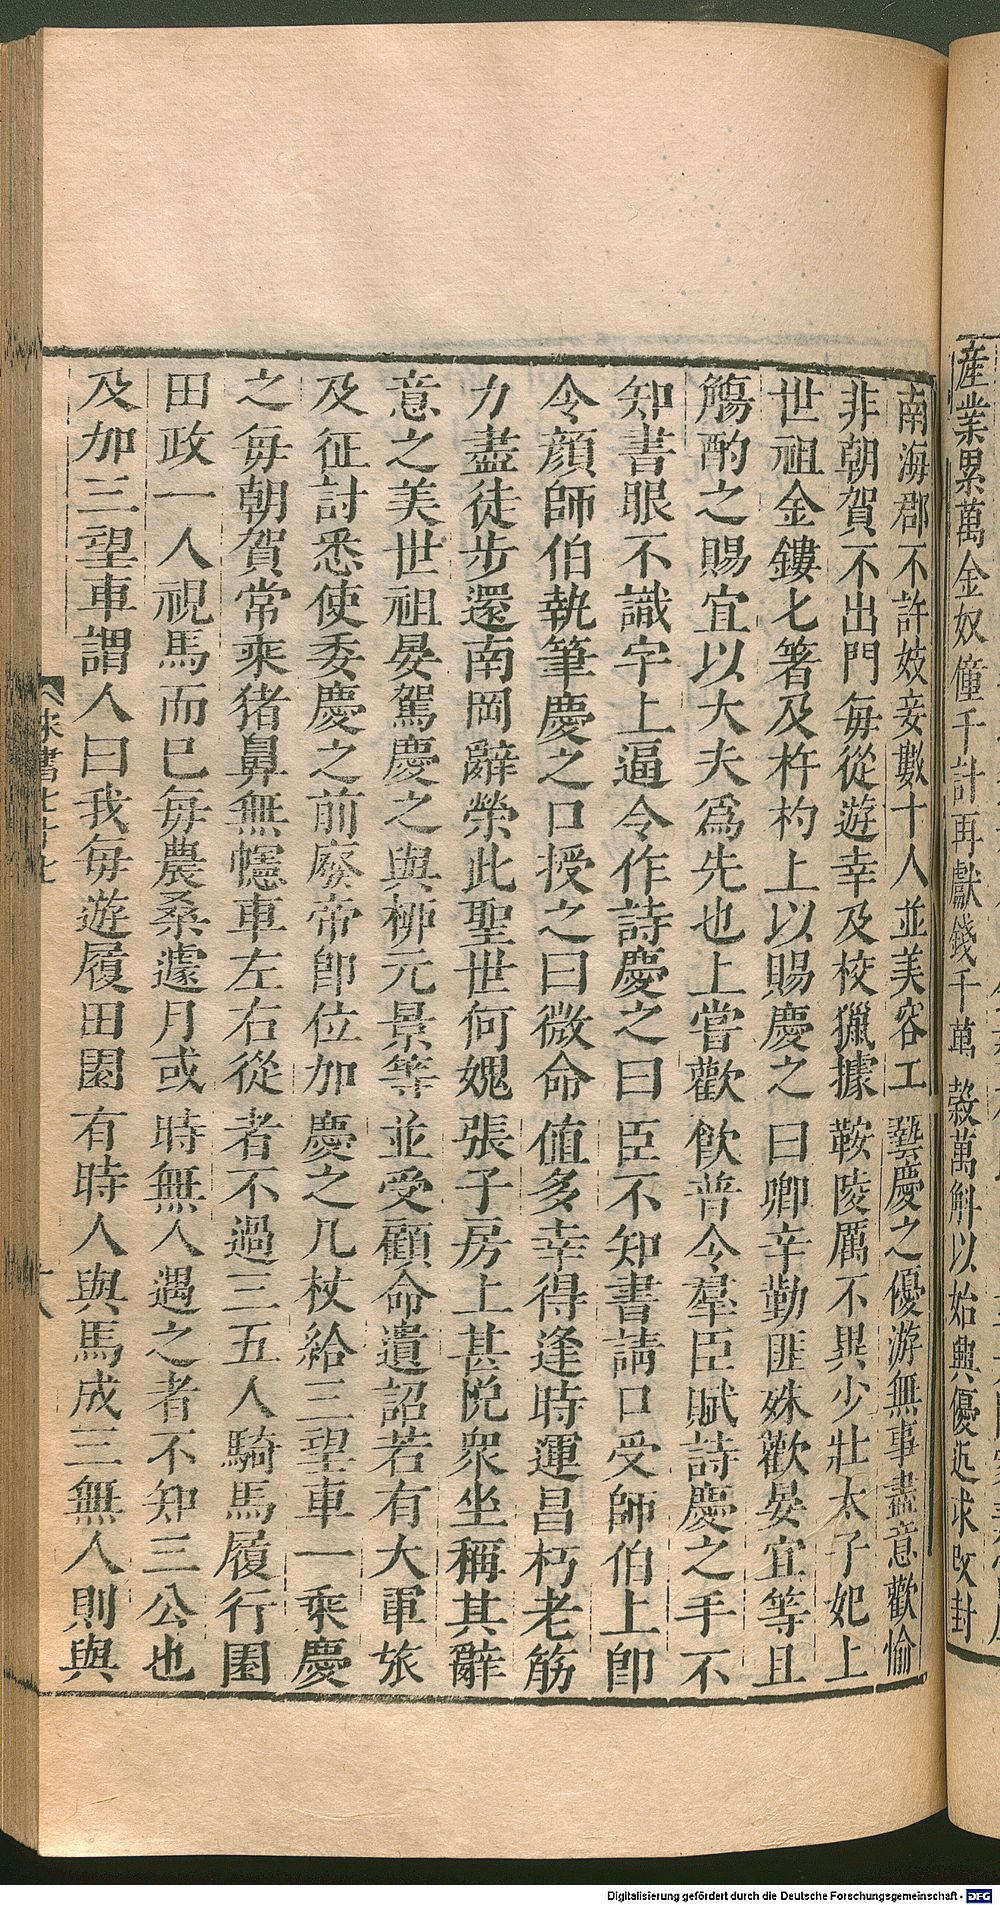 產業累萬金奴僮千計再獻錢千萬穀萬斛以始興優近求改封
南海郡不許妓妾數十人並美容工藝慶之優游無事盡意歡愉
非朝賀不出門每從遊幸及校獵據鞍陵厲不異少壯太子妃上
世祖金鏤匕箸及杵杓上以賜慶之曰卿辛勤匪殊歡晏宜等且
觴酌之賜宜以大夫爲先也上嘗歡飲普令羣臣賦詩慶之手不
知書眼不識字上逼令作詩慶之曰臣不知書請口受師伯上卽
令顏師伯執筆慶之口授之曰微命值多幸得逢時運昌朽老筋
力盡徒步還南岡辭榮此聖世何媿張子房上甚悅衆坐稱其辭
意之美世祖晏駕慶之與柳元景等並受顧命遺詔若有大軍旅
及征討悉使委慶之前廢帝卽位加慶之几杖給三望車一乘慶
之每朝賀常乘猪鼻無幰車左右從者不過三五人騎馬履行園
田政一人視馬而已每農桑遽月或時無人遇之者不知三公也
及加三望車謂人曰我每遊履田園有時人與馬成三無人則與
宋書七十七
十八
Digitalisierung gefördert durch die Deutsche Forschungsgemeinschaft - DFG